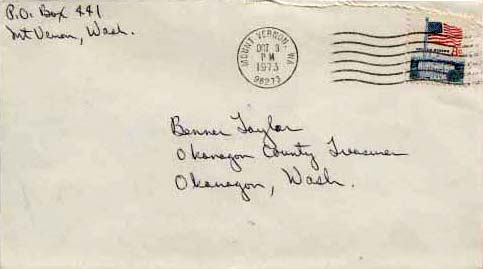 P.O. Box 441
Mt Vernon, Wash.
MOUNT VERNON, WA
OCT 3
PM
1973
98273
Benner Taylor
Okanogan County Treasurer
Okanogan, Wash.